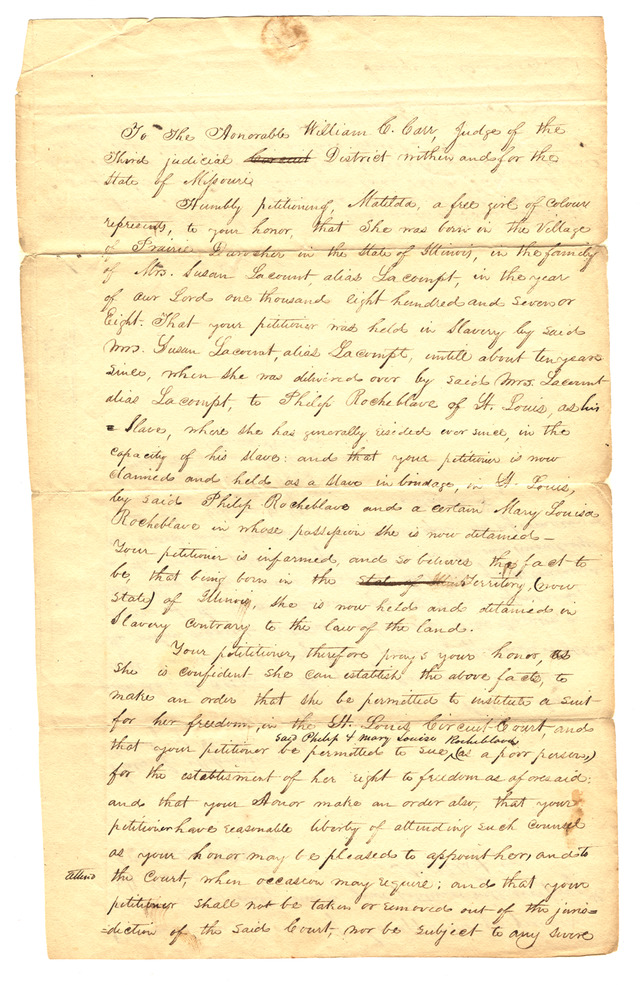 To The Honorable William C. Carr, Judge of the
Third judicial Circuit District within and for the
State of Missouri
Humbly petitioning, Matilda, a free girl of colour
represents, to your honor, that She was born in the Village
of Prairie Durocher in the State of Illinois, in the family
of Mrs. Susan Lacount, alias Lacompt, in the year
of our Lord one thousand Eight hundred and seven or
Eight. That your petitioner was held in Slavery by said
Mrs. Susan Lacount, alias Lacompt, untill about ten years
since, when she was delivered over by said Mrs. Lacount
alias Lacompt, to Philip Rocheblave of St. Louis, as his
= Slave, where she has generally resided ever since, in the
capacity of his slave: and that your petitioner is now
claimed and held as a slave in bondage, in St. Louis,
by said Philip Rocheblave and a certain Mary Louisa
Rocheblave in whose possession she is now detained –
Your petitioner is informed, and so believes the fact to
be, that being born in the State of Illinois Territory, (now
State) of Illinois, she is now held and detained in
Slavery contrary to the law of the land.
Your petitioner, therefore prays your honor, as
She is confident she can establish the above facts, to
make an order that she be permitted to institute a suit
for her freedom, in the St. Louis Circuit Court, and
said Philip & Mary Louisa Rocheblave
that your petitioner be permitted to sue, (as a poor person,)
for the establisment of her right to freedom as aforesaid:
and that your Honor make an order also, that your
petitioner have reasonable liberty of attending such counsel
as your honor may be pleased to appoint her, and to
attend the Court, when occasion may require; and that your
petitioner shall not be taken or removed out of the juris=
=diction of the said Court, nor be subject to any severe